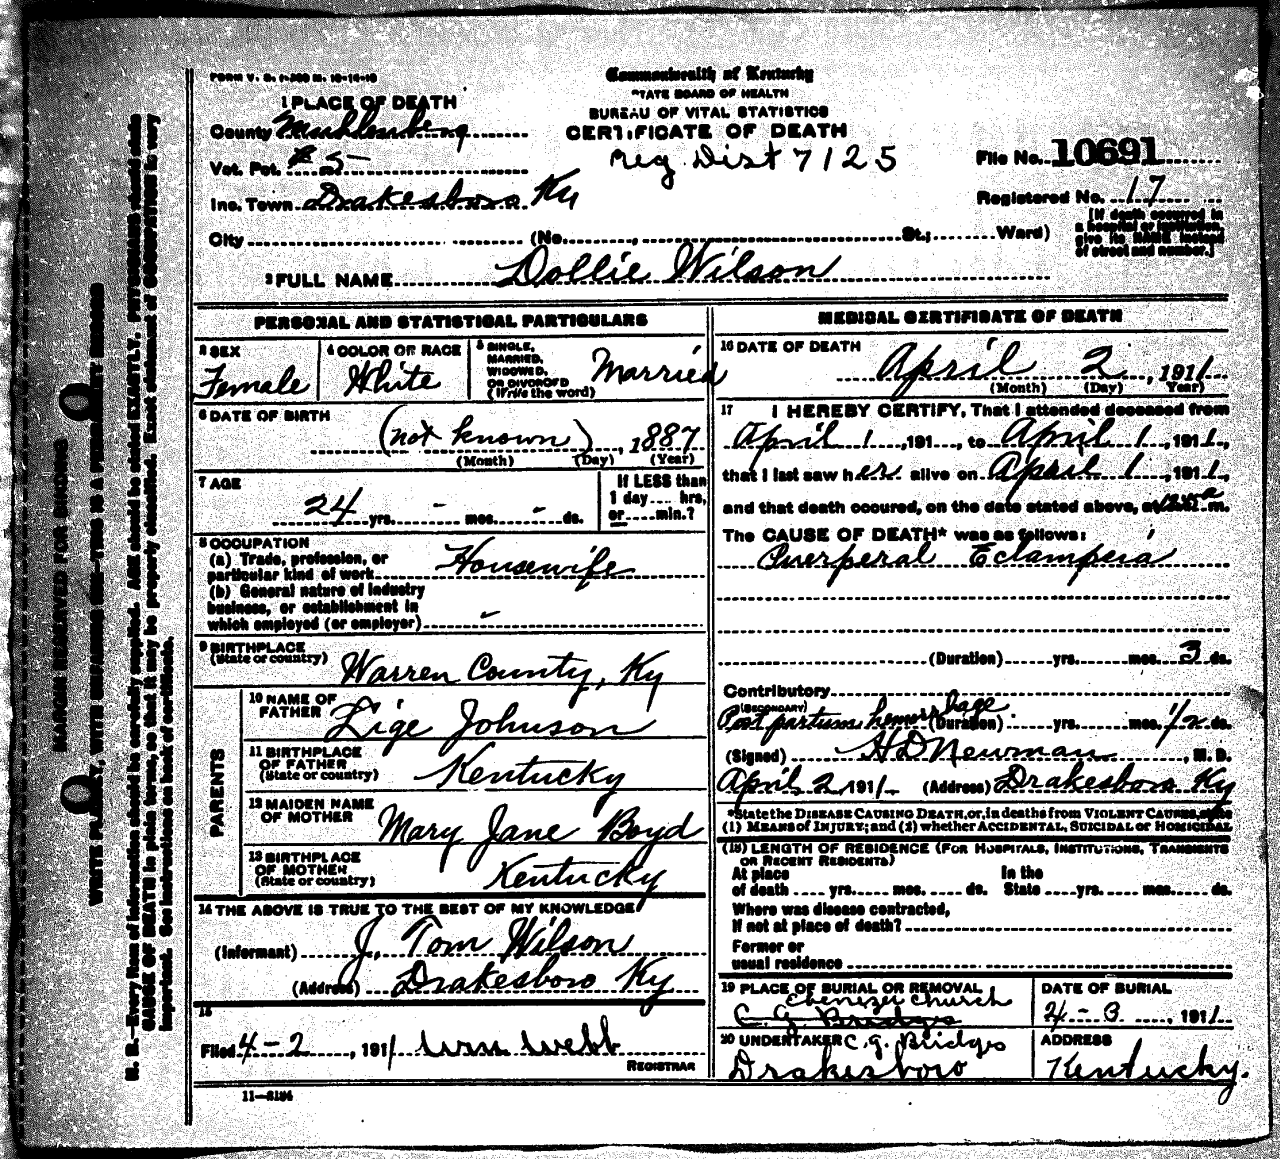 FORM V. S. 1-300 M. 10-14-10
Commonwealth of Kentucky
STATE BOARD OF HEALTH
BUREAU OF VITAL STATISTICS
CERTIFICATE OF DEATH
Reg. Dist 7125
File No. 10691
Registered No. 17
(If death occurred in
a hospital or institution,
give its NAME instead
of street and number.)
1 PLACE OF DEATH
County Muhlenberg
Vot. Pct. 5
Inc. Town Drakesboro Ky
City (No. , St.; Ward)
2 FULL NAME Dollie Wilson
PERSONAL AND STATISTICAL PARTICULARS
3 SEX
Female
4 COLOR OR RACE
White
5 SINGLE,
MARRIED,
WIDOWED,
OR DIVORCED
(Write the word)
Married
6 DATE OF BIRTH
(not known), 1887
(Month) (Day) (Year)
7 AGE
24 yrs. - mos. - ds.
If LESS than
1 day.... hrs,
or.....min.?
8 OCCUPATION
(a) Trade, profession, or
particular kind of work Housewife
(b) General nature of industry
business, or establishment in
which employed (or employer) -
9 BIRTHPLACE
(State or country) Warren County, Ky
PARENTS
10 NAME OF
FATHER Lige Johnson
11 BIRTHPLACE
OF FATHER
(State or country) Kentucky
12 MAIDEN NAME
OF MOTHER Mary Jane Boyd
13 BIRTHPLACE
OF MOTHER
(State or country) Kentucky
14 THE ABOVE IS TRUE TO THE BEST OF MY KNOWLEDGE
(Informant) J. Tom Wilson
(Address) Drakesboro Ky
15
Filed 4-2, 1911 Wm Webb
REGISTRAR
11-8184
MEDICAL CERTIFICATE OF DEATH
16 DATE OF DEATH
April 2, 1911
(Month) (Day) (Year)
17 I HEREBY CERTIFY, That I attended deceased from
April 1, 191 , to April 1, 1911,
that I last saw her alive on April 1, 1911,
and that death occured, on the date stated above, at m.
The CAUSE OF DEATH* was as follows:
Puerperal Eclampsia
(Duration) yrs. mos. 3 ds.
Contributory
(SECONDARY)
Post partum hemorrhage (Duration) yrs. mos. 1/2 ds.
(Signed) H D Newman, M. D.
April 2 1911. (Address) Drakesboro Ky
*State the DISEASE CAUSING DEATH, or, in deaths from VIOLENT CAUSES, state
(1) MEANS of INJURY; and (2) whether ACCIDENTAL, SUICIDAL or HOMICIDAL
(18) LENGTH OF RESIDENCE (FOR HOSPITALS, INSTITUTIONS, TRANSIENTS
OR RECENT RESIDENTS)
At place In the
of death yrs. mos. ds. State yrs. mos. ds.
Where was disease contracted,
If not at place of death?
Former or
usual residence
19 PLACE OF BURIAL OR REMOVAL
Ebenezer Church
C. G. Bridges
DATE OF BURIAL
4-3, 1911
20 UNDERTAKER C. G. Bridges
Drakesboro
ADDRESS
Kentucky.
MARGIN RESERVED FOR BINDING
WRITE PLAINLY, WITH UNFADING INK—THIS IS A PERMANENT RECORD
N. B.—Every item of information should be carefully supplied. AGE should be stated EXACTLY. PHYSICIANS should state
CAUSE OF DEATH in plain terms, so that it may be properly classified. Exact statement of OCCUPATION is very
important. See instructions on back of certificate.